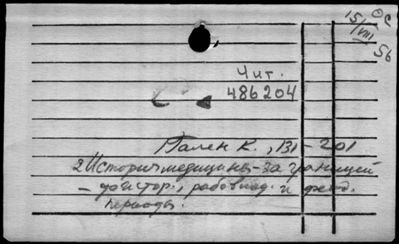 ОС
15/VIII 56
Чит.
486204
Гален К., 131–201
2 История медицины – за границей
– доистор., рабовлад. и феод.
периоды.